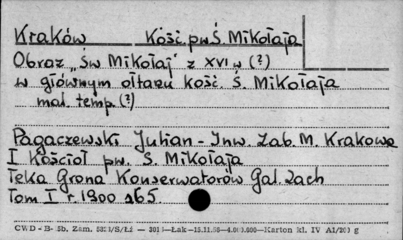 Kraków Kość. pw Ś. Mikołaja
Obraz „Św Mikołaj" z XVI w (?)
w głównym ołtarzu kość. Ś. Mikołaja
mal. temp (?)
Pagaczewski Julian - Inw. Zab. M. Krakowa
I Kościoł pw. Ś. Mikołaja
Teka Grona Konserwatorów Gal. Zach
Tom I r. 1900 s 65
CWD - B- Zam. Łak — Karton kl. IV A1/200 g